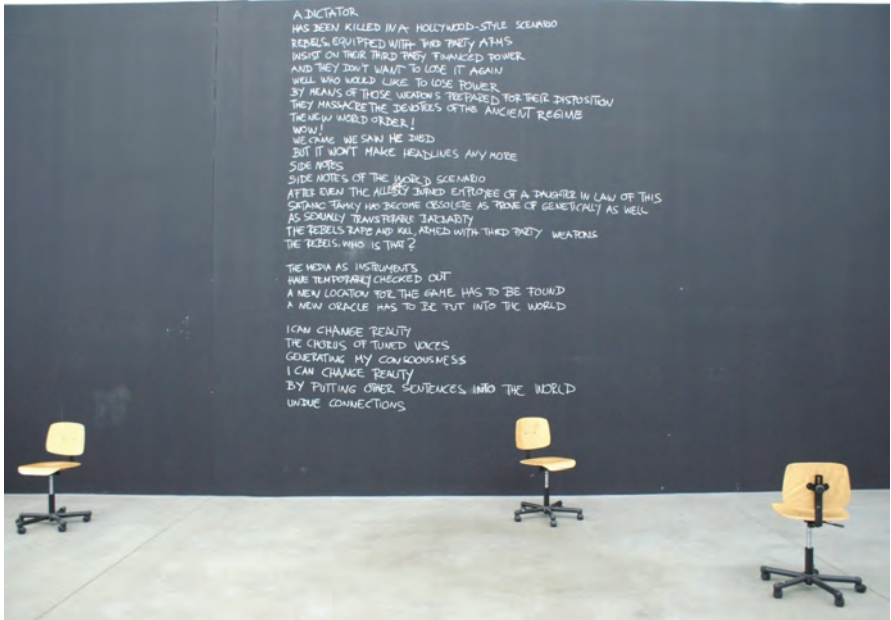 A DICTATOR
HAS BEEN KILLED IN A HOLLYWOOD-STYLE SCENARIO
REBELS, EQUIPPED WITH THIRD PARTY ARMS
INSIST ON THEIR THIRD PARTY FINANCED POWER
AND THEY DON'T WANT TO LOSE IT AGAIN
WELL WHO WOULD LIKE TO LOSE POWER
BY MEANS OF THOSE WEAPONS PREPARED FOR THEIR DISPOSITION
THEY MASSACRE THE DEVOTEES OF THE ANCIENT REGIME
THE NEW WORLD ORDER!
WOW!
WE CAME WE SAW HE DIED
BUT IT WON'T MAKE HEADLINES ANY MORE
SIDE NOTES
SIDE NOTES OF THE WORLD SCENARIO
AFTER EVEN THE ALLEGEDLY BURNED EMPLOYEE OF A DAUGHTER IN LAW OF THIS
SATANIC FAMILY HAS BECOME OBSOLETE AS PROVE OF GENETICALLY AS WELL
AS SEXUALLY TRANSFERABLE BARBARITY
THE REBELS RAPE AND KILL, ARMED WITH THIRD PARTY WEAPONS
THE REBELS, WHO IS THAT?
THE MEDIA AS INSTRUMENTS
HAVE TEMPORARILY CHECKED OUT
A NEW LOCATION FOR THE GAME HAS TO BE FOUND
A NEW ORACLE HAS TO BE PUT INTO THE WORLD
I CAN CHANGE REALITY
THE CHORUS OF TUNED VOICES
GENERATING MY CONSCIOUSNESS
I CAN CHANGE REALITY
BY PUTTING OTHER SENTENCES INTO THE WORLD
UNDUE CONNECTIONS